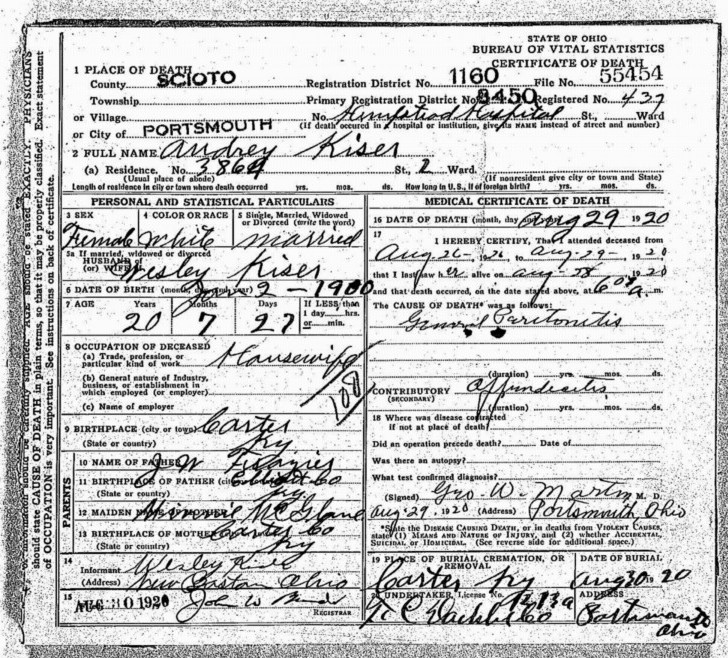 STATE OF OHIO
BUREAU OF VITAL STATISTICS
CERTIFICATE OF DEATH
1 PLACE OF DEATH
County SCIOTO Registration District No. 1160 File No. 55454
Township Primary Registration District No. 8450 Registered No. 437
or Village No. Hempstead Hospital St., Ward
or City of PORTSMOUTH (If death occurred in a hospital or institution, give its NAME instead of street and number)
2 FULL NAME Audrey Kiser
(a) Residence. No. 3864 St., 2 Ward.
(Usual place of abode) (If nonresident give city or town and State)
Length of residence in city or town where death occurred yrs. mos. ds. How long in U. S., if of foreign birth? yrs. mos. ds.
PERSONAL AND STATISTICAL PARTICULARS
3 SEX 4 COLOR OR RACE 5 Single, Married, Widowed or Divorced (write the word)
Female White Married
5a If married, widowed or divorced
HUSBAND of
(or) WIFE of Wesley Kiser
6 DATE OF BIRTH (month, day and year) 2 - 1900
7 AGE Years Months Days If LESS than
1 day hrs.
or min.
20 7 27
8 OCCUPATION OF DECEASED
(a) Trade, profession, or
particular kind of work Housewife
(b) General nature of Industry,
business, or establishment in
which employed (or employer)
(c) Name of employer
108
9 BIRTHPLACE (city or town) Carter
(State or country) Ky
PARENTS
10 NAME OF FATHER J W
11 BIRTHPLACE OF FATHER Elliott Co
(State or country) Ky
12 MAIDEN NAME OF MOTHER Minnie
13 BIRTHPLACE OF MOTHER Carter Co
(State or country) Ky
14
Informant Wesley Kiser
(Address) New Boston Ohio
15
AUG 30 1920 John W
REGISTRAR
MEDICAL CERTIFICATE OF DEATH
16 DATE OF DEATH (month, day and year) Aug 29 1920
17
I HEREBY CERTIFY, That I attended deceased from
Aug 26 - 19 to Aug - 29 -, 1920
that I last saw her alive on Aug - 28, 1920
and that death occurred, on the date stated above, at 6 a m.
The CAUSE OF DEATH* was as follows:
General Paritonitis
(duration) yrs. mos. ds.
CONTRIBUTORY Appendecitis
(SECONDARY)
(duration) yrs. mos. ds.
18 Where was disease contracted
if not at place of death?
Did an operation precede death? Date of
Was there an autopsy?
What test confirmed diagnosis?
(Signed) Geo. W. Martin M. D.
Aug 29, 1920 (Address) Portsmouth Ohio
*State the DISEASE CAUSING DEATH, or in deaths from VIOLENT CAUSES,
state (1) MEANS AND NATURE OF INJURY, and (2) whether ACCIDENTAL,
SUICIDAL OR HOMICIDAL. (See reverse side for additional space.)
19 PLACE OF BURIAL, CREMATION, OR REMOVAL DATE OF BURIAL
Carter Ky Aug 30 1920
UNDERTAKER, License No. 1213a ADDRESS
Co Portsmouth Ohio
PHYSICIANS
should state CAUSE OF DEATH in plain terms, so that it may be properly classified. Exact statement
of OCCUPATION is very important. See instructions on back of certificate.